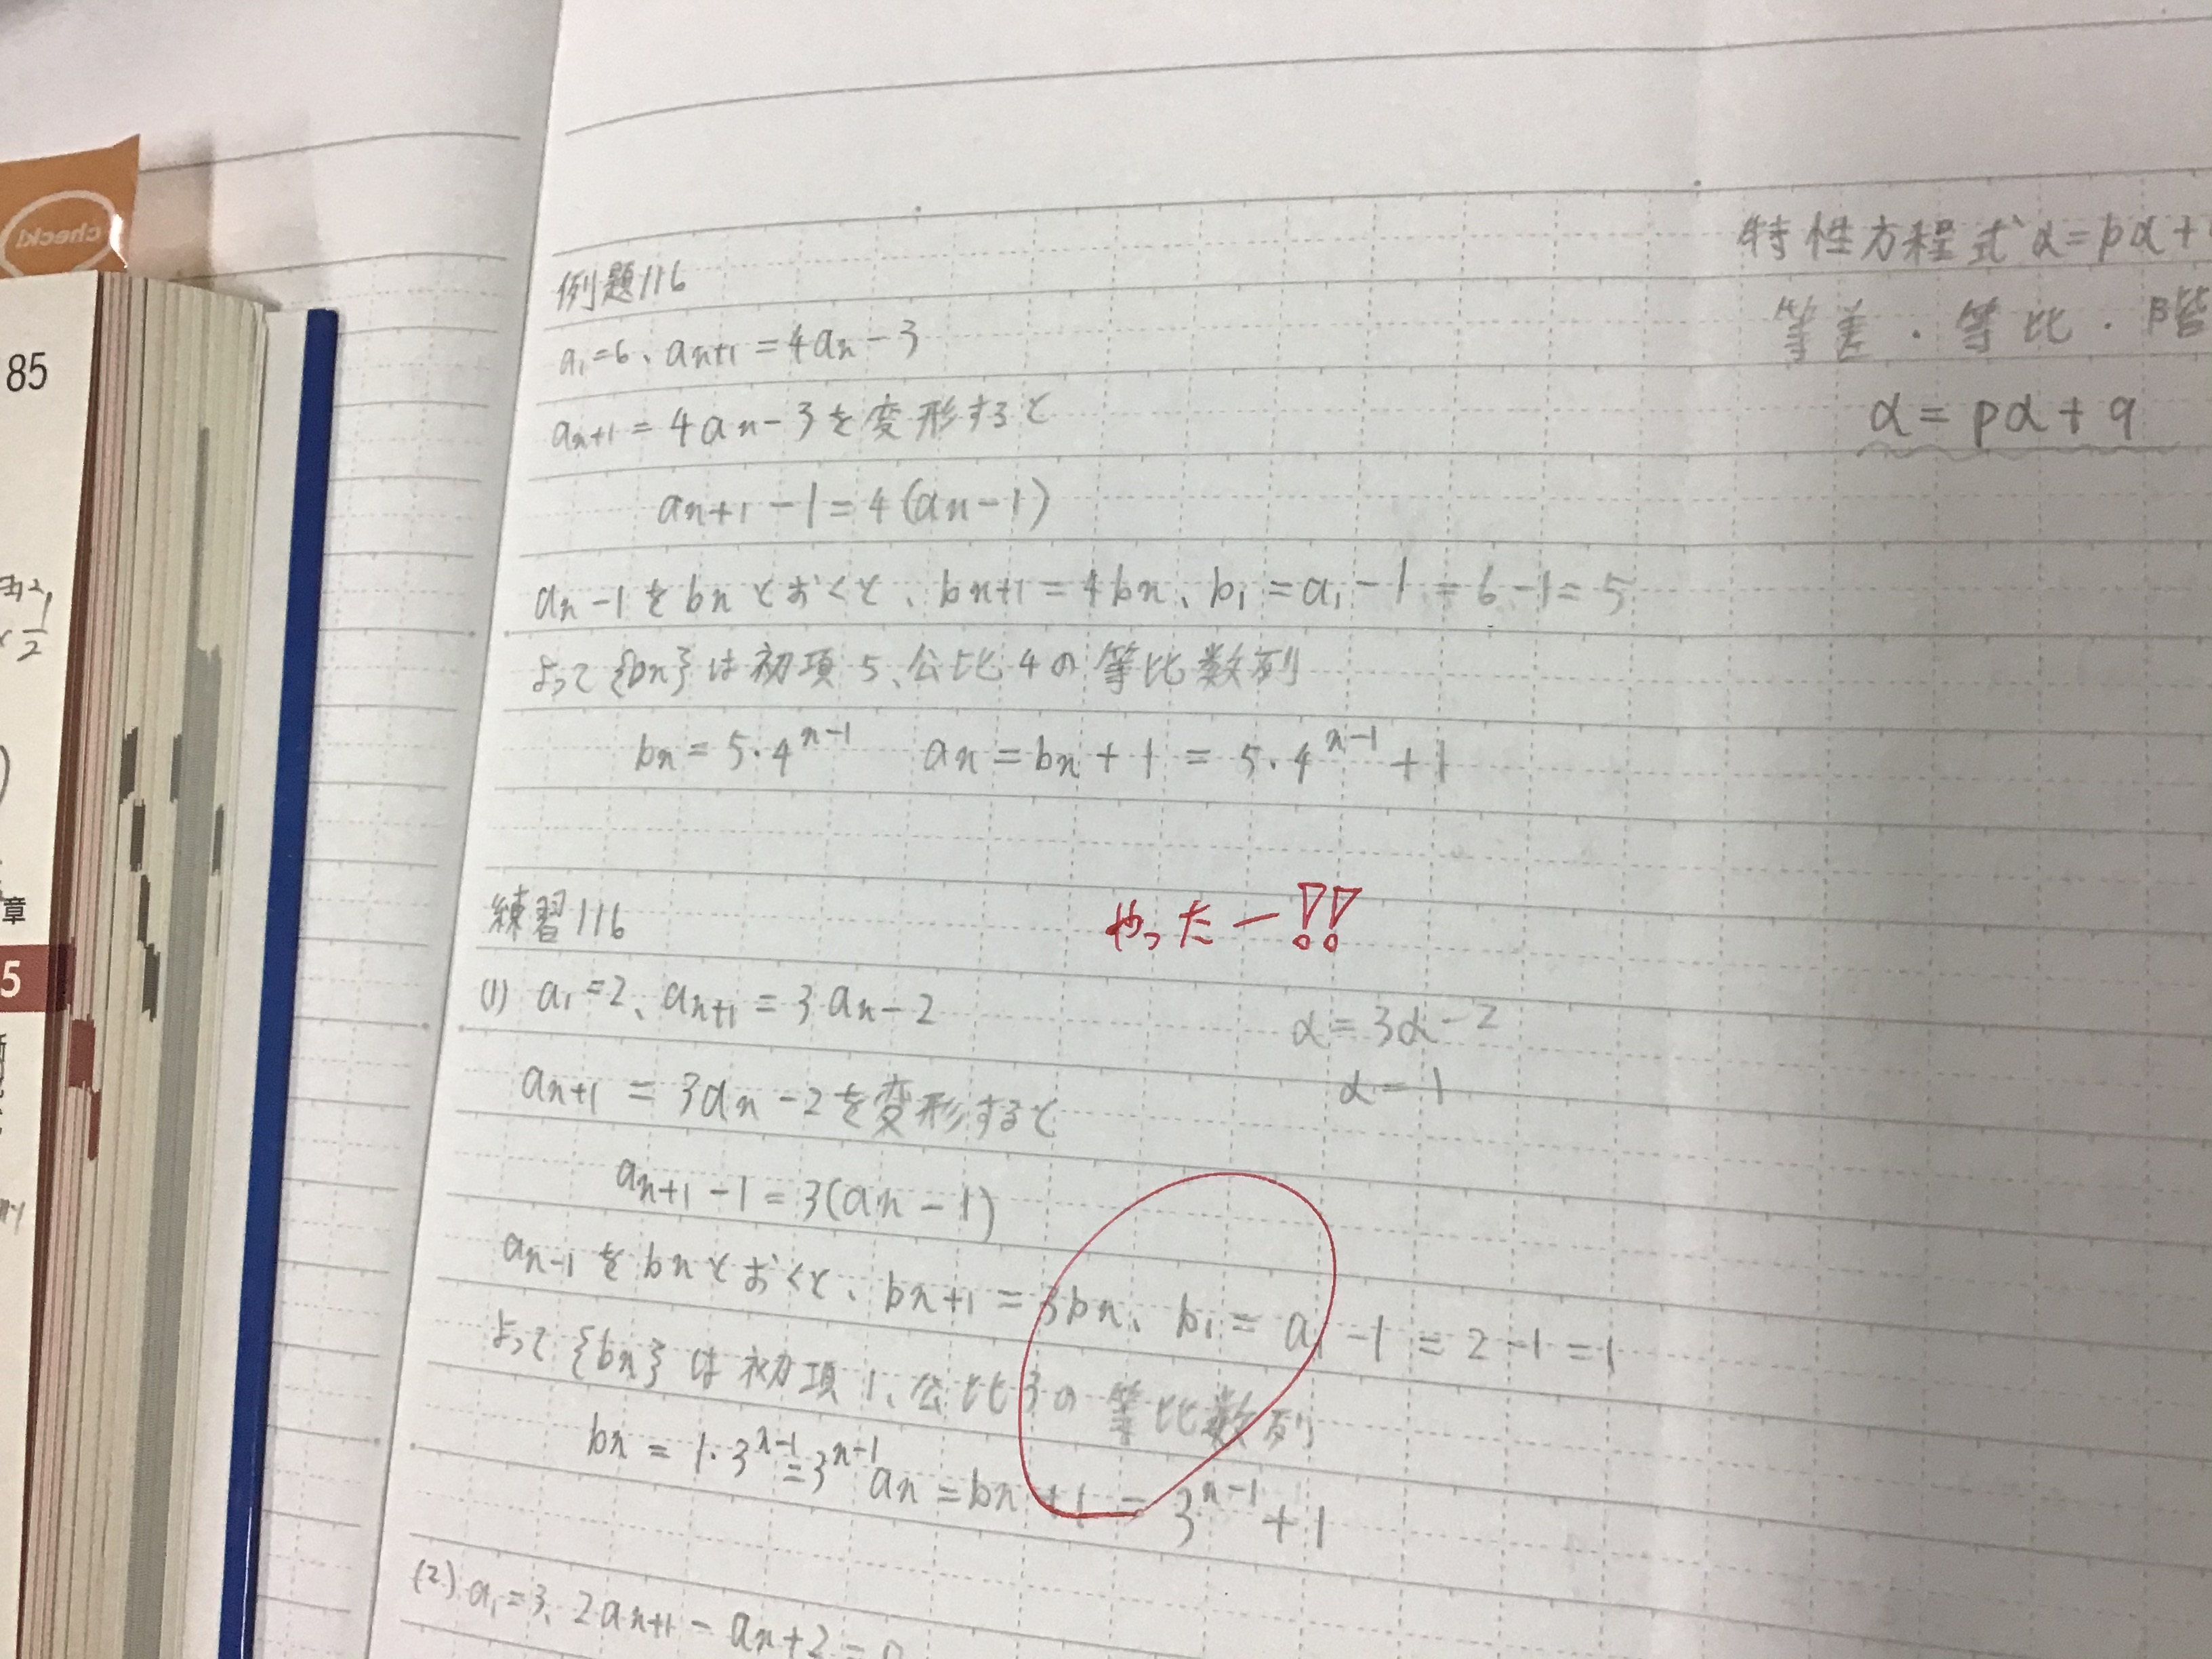 check!
85
1
2
章
5
例題116
a₁=6、an+1=4an-3
an+1=4an-3を変形すると
an+1-1=4(an-1)
an-1をbnとおくと、bn+1=4bn、b₁=a₁-1=6-1=5
よって{bn}は初項5、公比4の等比数列
bn=5・4^{n-1} an=bn+1=5・4^{n-1}+1
特性方程式α=pα+
等差・等比・階
α=pα+q
練習116
やったー!!
(1) a₁=2、an+1=3an-2
α=3α-2
α=1
an+1=3an-2を変形すると
an+1-1=3(an-1)
an-1をbnとおくと、bn+1=3bn、b₁=a₁-1=2-1=1
よって{bn}は初項1、公比3の等比数列
bn=1・3^{n-1}=3^{n-1} an=bn+1=3^{n-1}+1
(2) a₁=3、2an+1-an+2=0